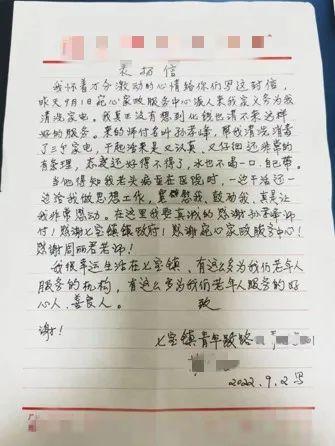 表扬信
我怀着万分激动的心情给你们写这封信，
昨天9月1日宛心家政服务中心派人来我家义务为我
清洗家电。我真正没有想到化钱也请不来这样
好的服务。来的师付者叶孙孝峰，帮我清洗消毒
了三个家电，干起活来是又认真、又仔细还非常的
有条理，态度还好得不得了，水也不喝一口，自己带。
当他得知我老头病重在医院时，一边干活还一
边给我做思想工作，安慰我，鼓励我，真是让
我非常感动。在这里我要真诚的感谢孙孝峰师
付！感谢七宝镇镇政府！感谢宛心家政服务中心！
感谢周丽君老师！
我很幸运生活在七宝镇，有这么多为我们老年人
服务的机构，有这么多为我们老年人服务的好
心人、善良人。 致
谢！
七宝镇青年路
2022.9.2写